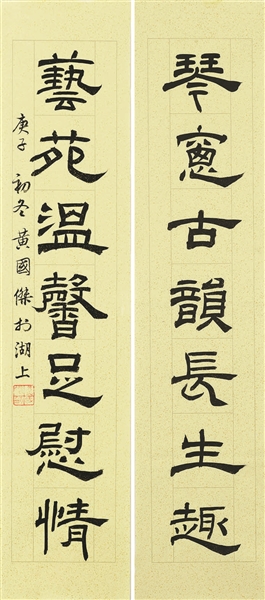 琴窻古韻長生趣
藝苑溫馨足慰情
庚子初冬黃國傑於湖上